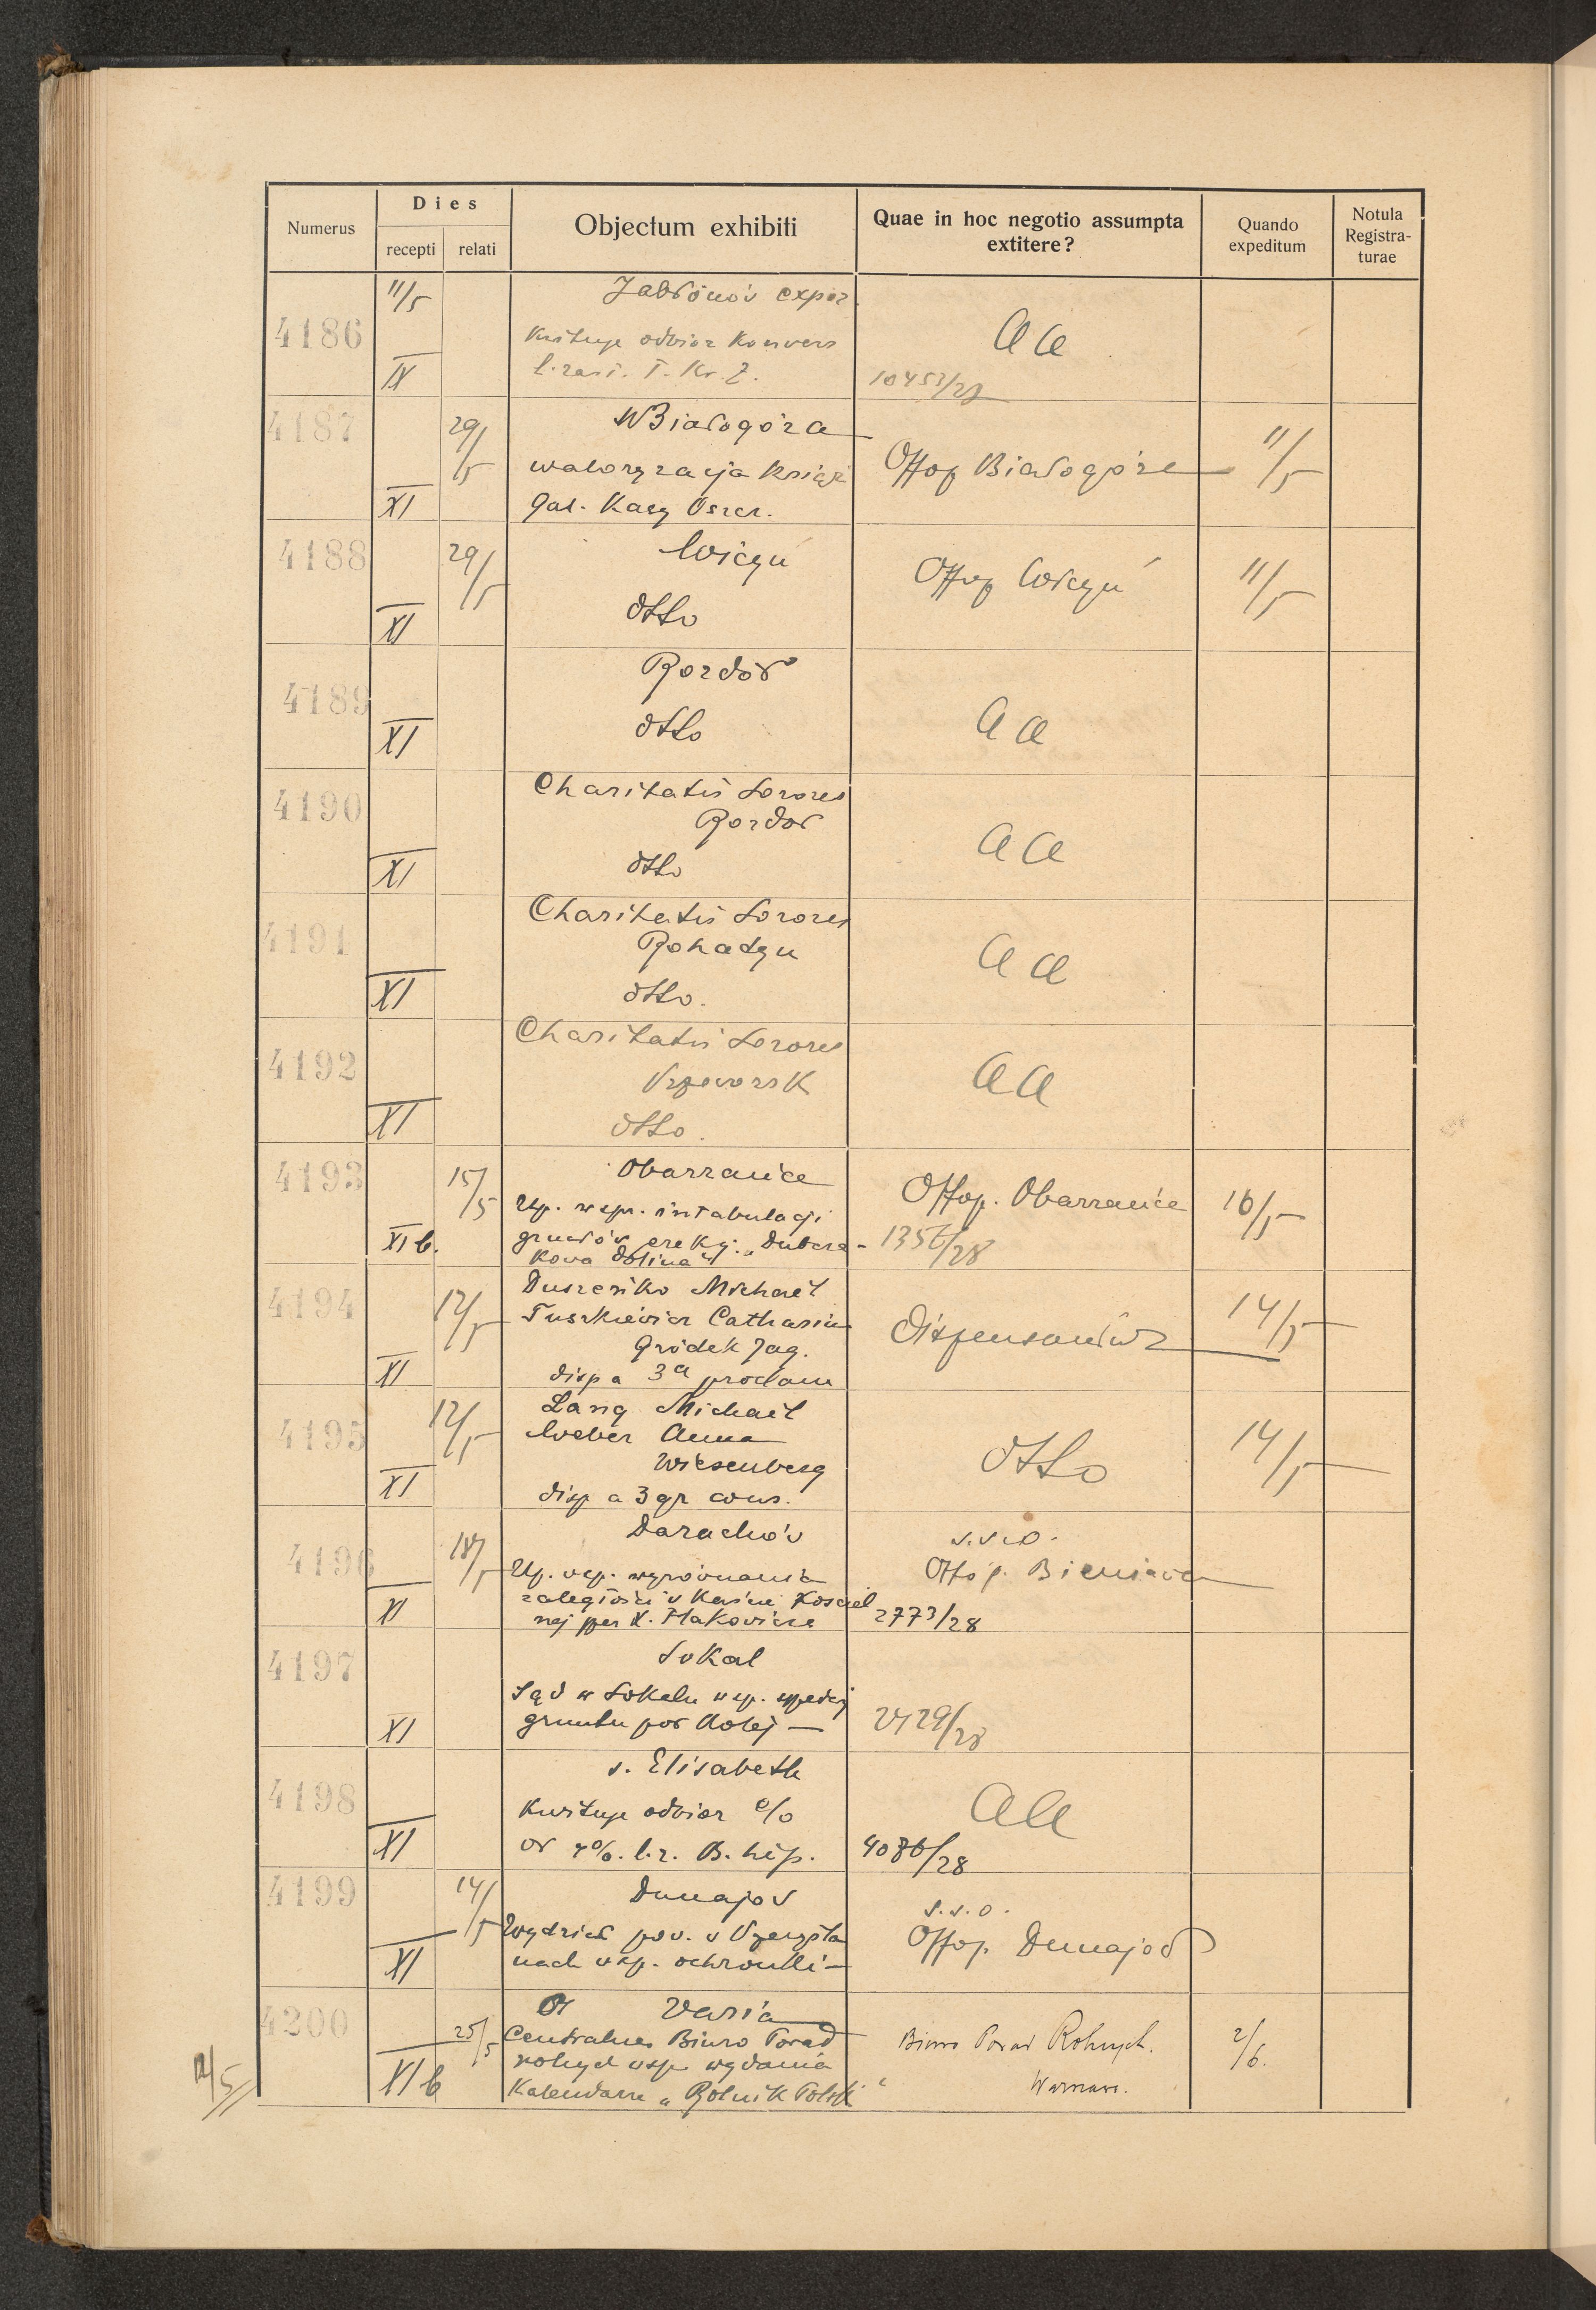 Numerus
Dies
recepti relati
Objectum exhibiti
Quae in hoc negotio assumpta
extitere?
Quando
expeditum
Notula
Registra-
turae
4186
11/5
IX
Jabłonów expoz.
Kwituje odbiór Konwers
l. zast. T. Kr. Z.
aa
10453/27
4187
29/5
XI
Białogóra
waloryzacja książ
Gal. Kasy Oszcz.
Offop Białogóra
11/5
4188
29/5
XI
Wicyń
dtto
Offop Wicyń
11/5
4189
XI
Rozdół
dtto
aa
4190
XI
Charitatis Sorores
Rozdół
dtto
aa
4191
XI
Charitatis Sorores
Rohatyn
dtto.
aa
4192
XI
Charitatis Sorores
Przeworsk
dtto.
aa
4193
15/5
XI b.
Obarzańce
Up. w spr. intabulacji
gruntów erekcj. "
kowa Dolina"
Offop. Obarzańce
1356/28
16/5
4194
12/5
XI
Duszeńko Michael
Tuszkiewicz Catharina
Gródek Jag.
disp a 3a proclam
Dispensantur
14/5
4195
12/5
XI
Lang Michael
Weber Anna
Wiesenberg
disp a 3 gr cons.
dtto
14/5
4196
18/5
XI
Darachów
Up. wsp. wyrównania
zaległości w Kasie Kościel
nej przez X. Hakowicza
s.s.o.
Offop. Bieniawa
2773/28
4197
XI
Sokal
Sąd w Sokalu wsp.
gruntu pod Kolej —
2429/28
4198
XI
s. Elisabeth
Kwituje odbiór c/o
od 4%. l. z. B. hip.
aa
4086/28
4199
14/5
XI
Dunajów
Wydział pow. w Przemyśla
nach wsp. ochronki —
s.s.o.
Offop. Dunajów
4200
25/5
XI b
Varia
Centralne Biuro Porad
rolnych wsp. wydania
Kalendarza "Rolnik Polski"
Biuro Porad Rolnych.
Warszawa.
2/6.
12/5